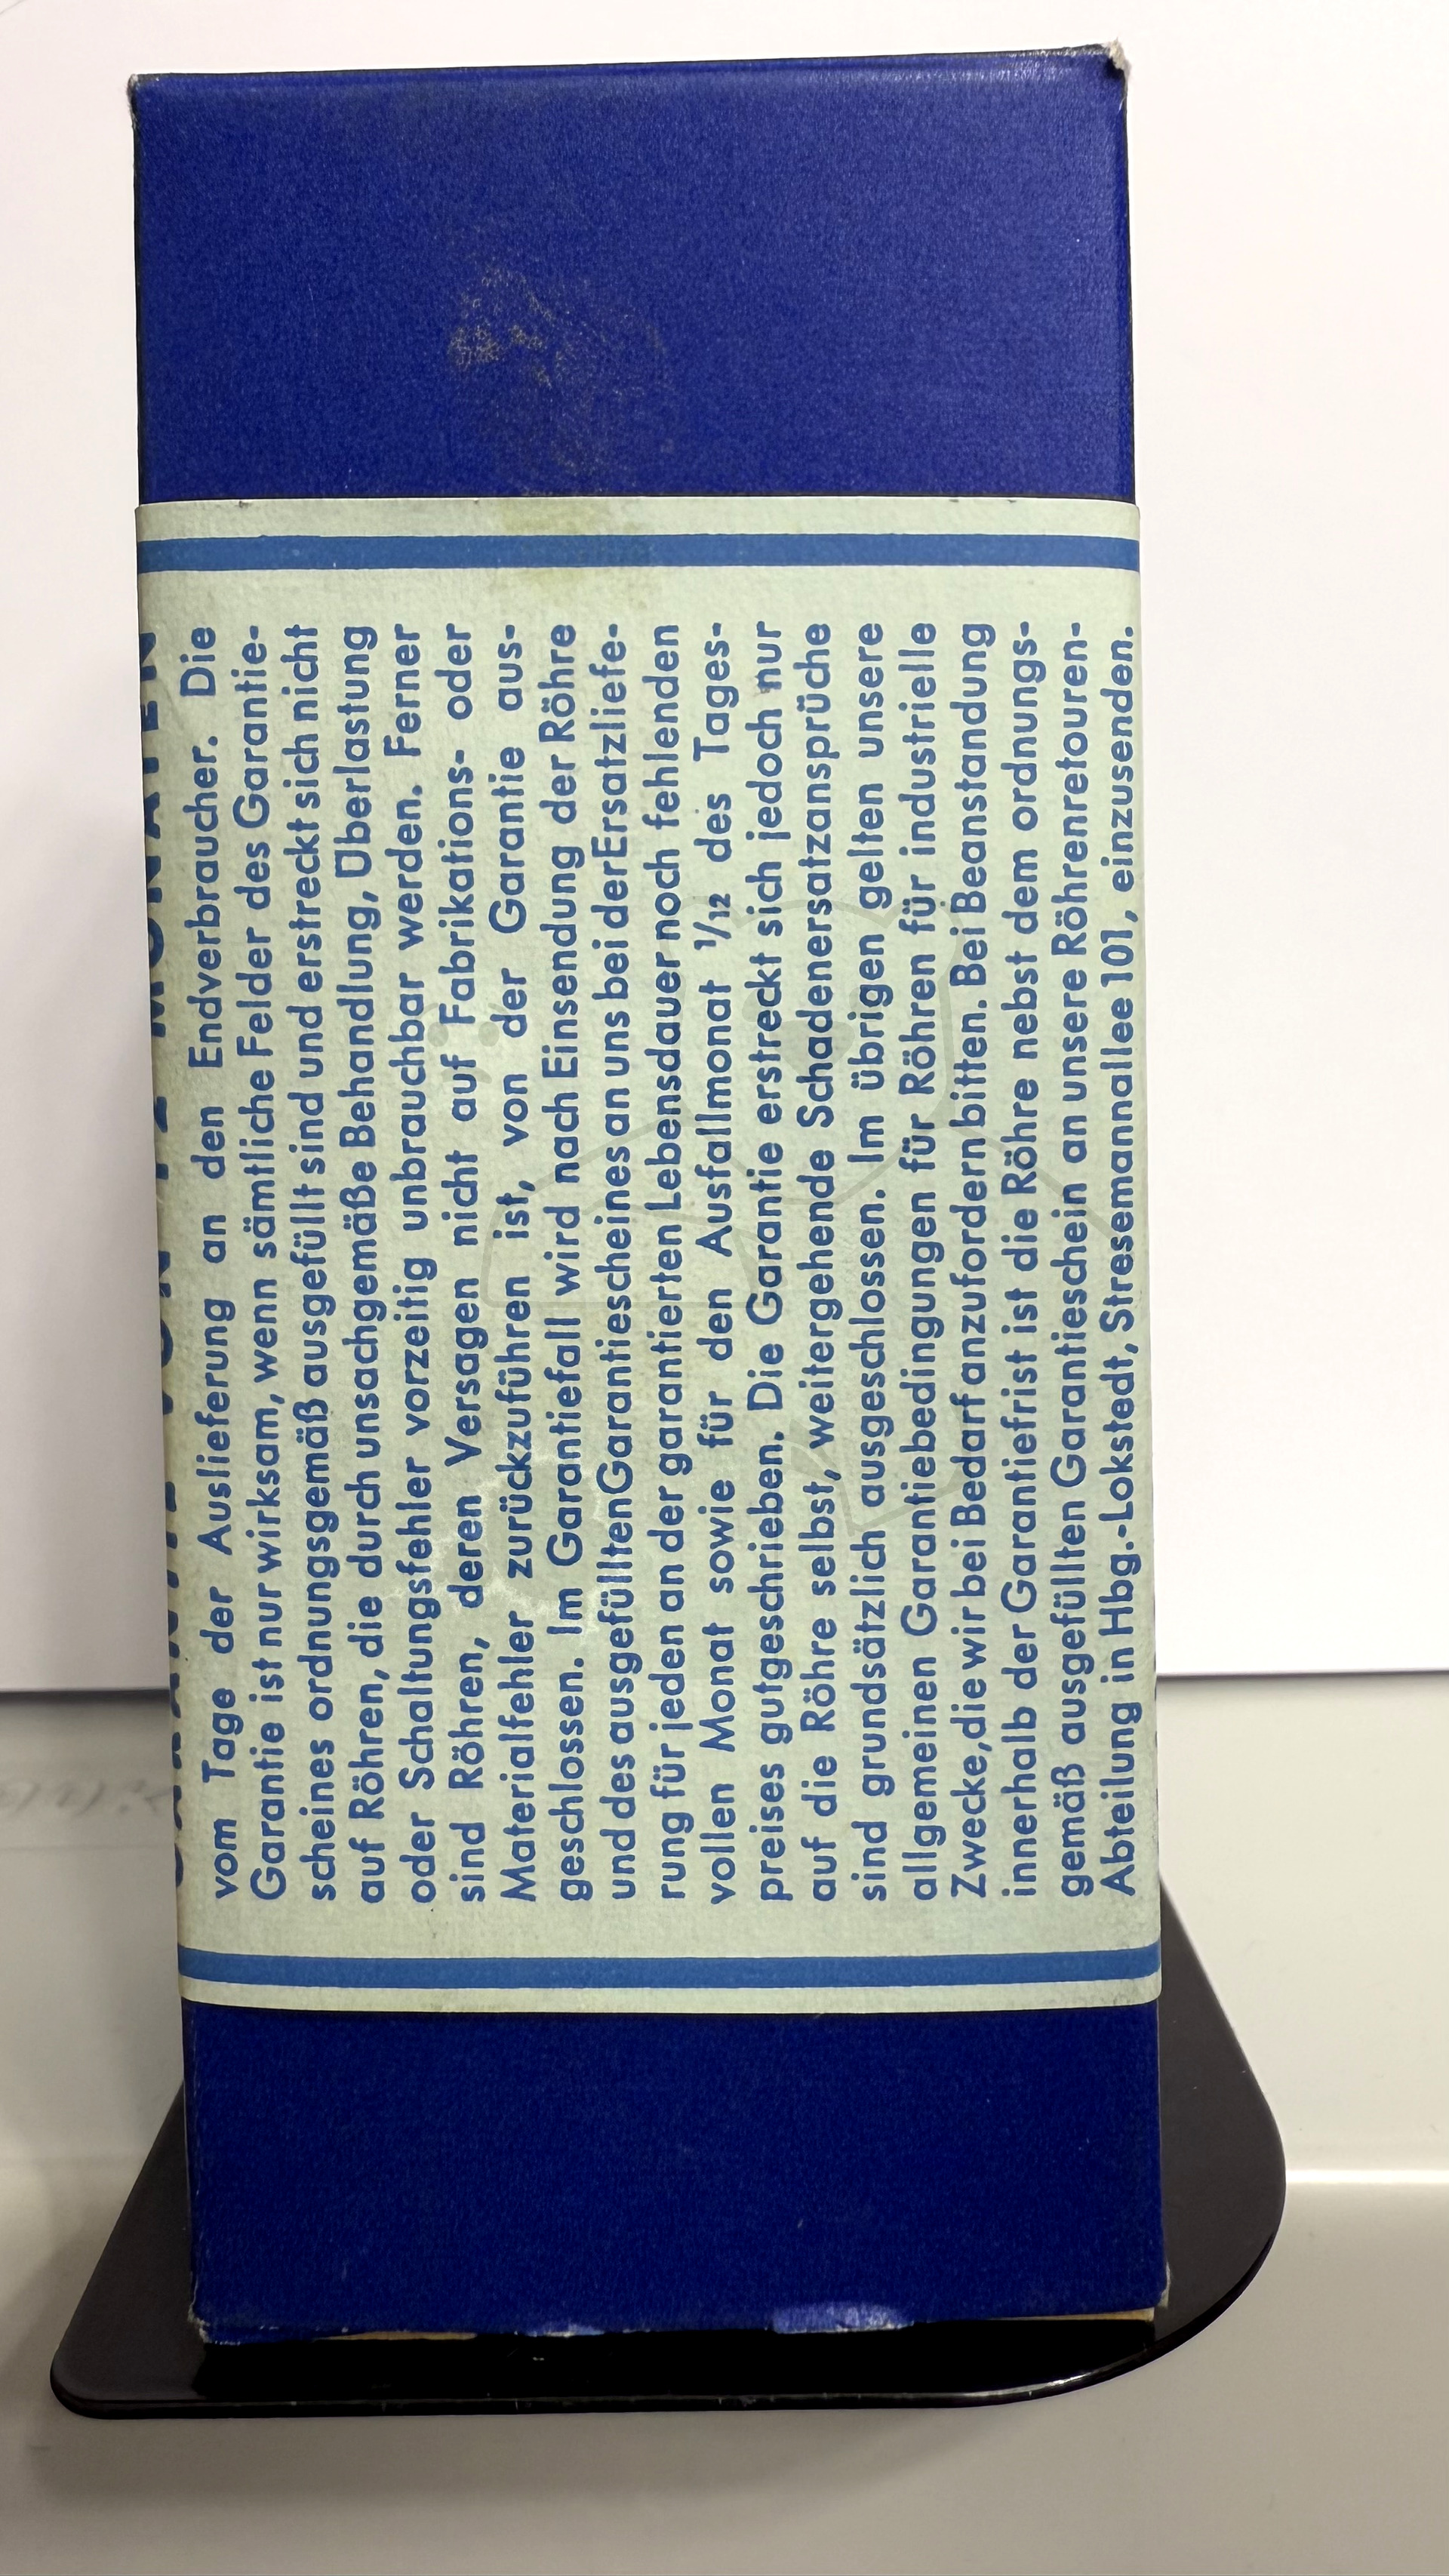 GARANTIE VON 12 MONATEN
vom Tage der Auslieferung an den Endverbraucher. Die
Garantie ist nur wirksam, wenn sämtliche Felder des Garantie-
scheines ordnungsgemäß ausgefüllt sind und erstreckt sich nicht
auf Röhren, die durch unsachgemäße Behandlung, Überlastung
oder Schaltungsfehler vorzeitig unbrauchbar werden. Ferner
sind Röhren, deren Versagen nicht auf Fabrikations- oder
Materialfehler zurückzuführen ist, von der Garantie aus-
geschlossen. Im Garantiefall wird nach Einsendung der Röhre
und des ausgefüllten Garantiescheines an uns bei der Ersatzliefe-
rung für jeden an der garantierten Lebensdauer noch fehlenden
vollen Monat sowie für den Ausfallmonat 1/12 des Tages-
preises gutgeschrieben. Die Garantie erstreckt sich jedoch nur
auf die Röhre selbst, weitergehende Schadenersatzansprüche
sind grundsätzlich ausgeschlossen. Im übrigen gelten unsere
allgemeinen Garantiebedingungen für Röhren für industrielle
Zwecke, die wir bei Bedarf anzufordern bitten. Bei Beanstandung
innerhalb der Garantiefrist ist die Röhre nebst dem ordnungs-
gemäß ausgefüllten Garantieschein an unsere Röhrenretouren-
Abteilung in Hbg.-Lokstedt, Stresemannallee 101, einzusenden.